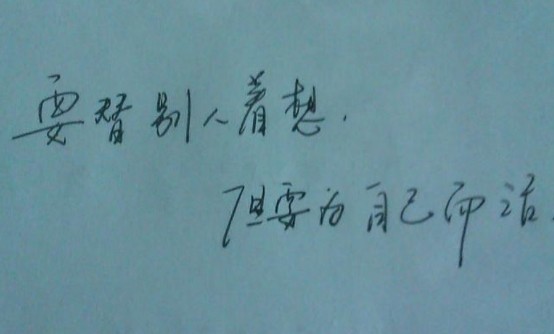 要替别人着想.
但要为自己而活.